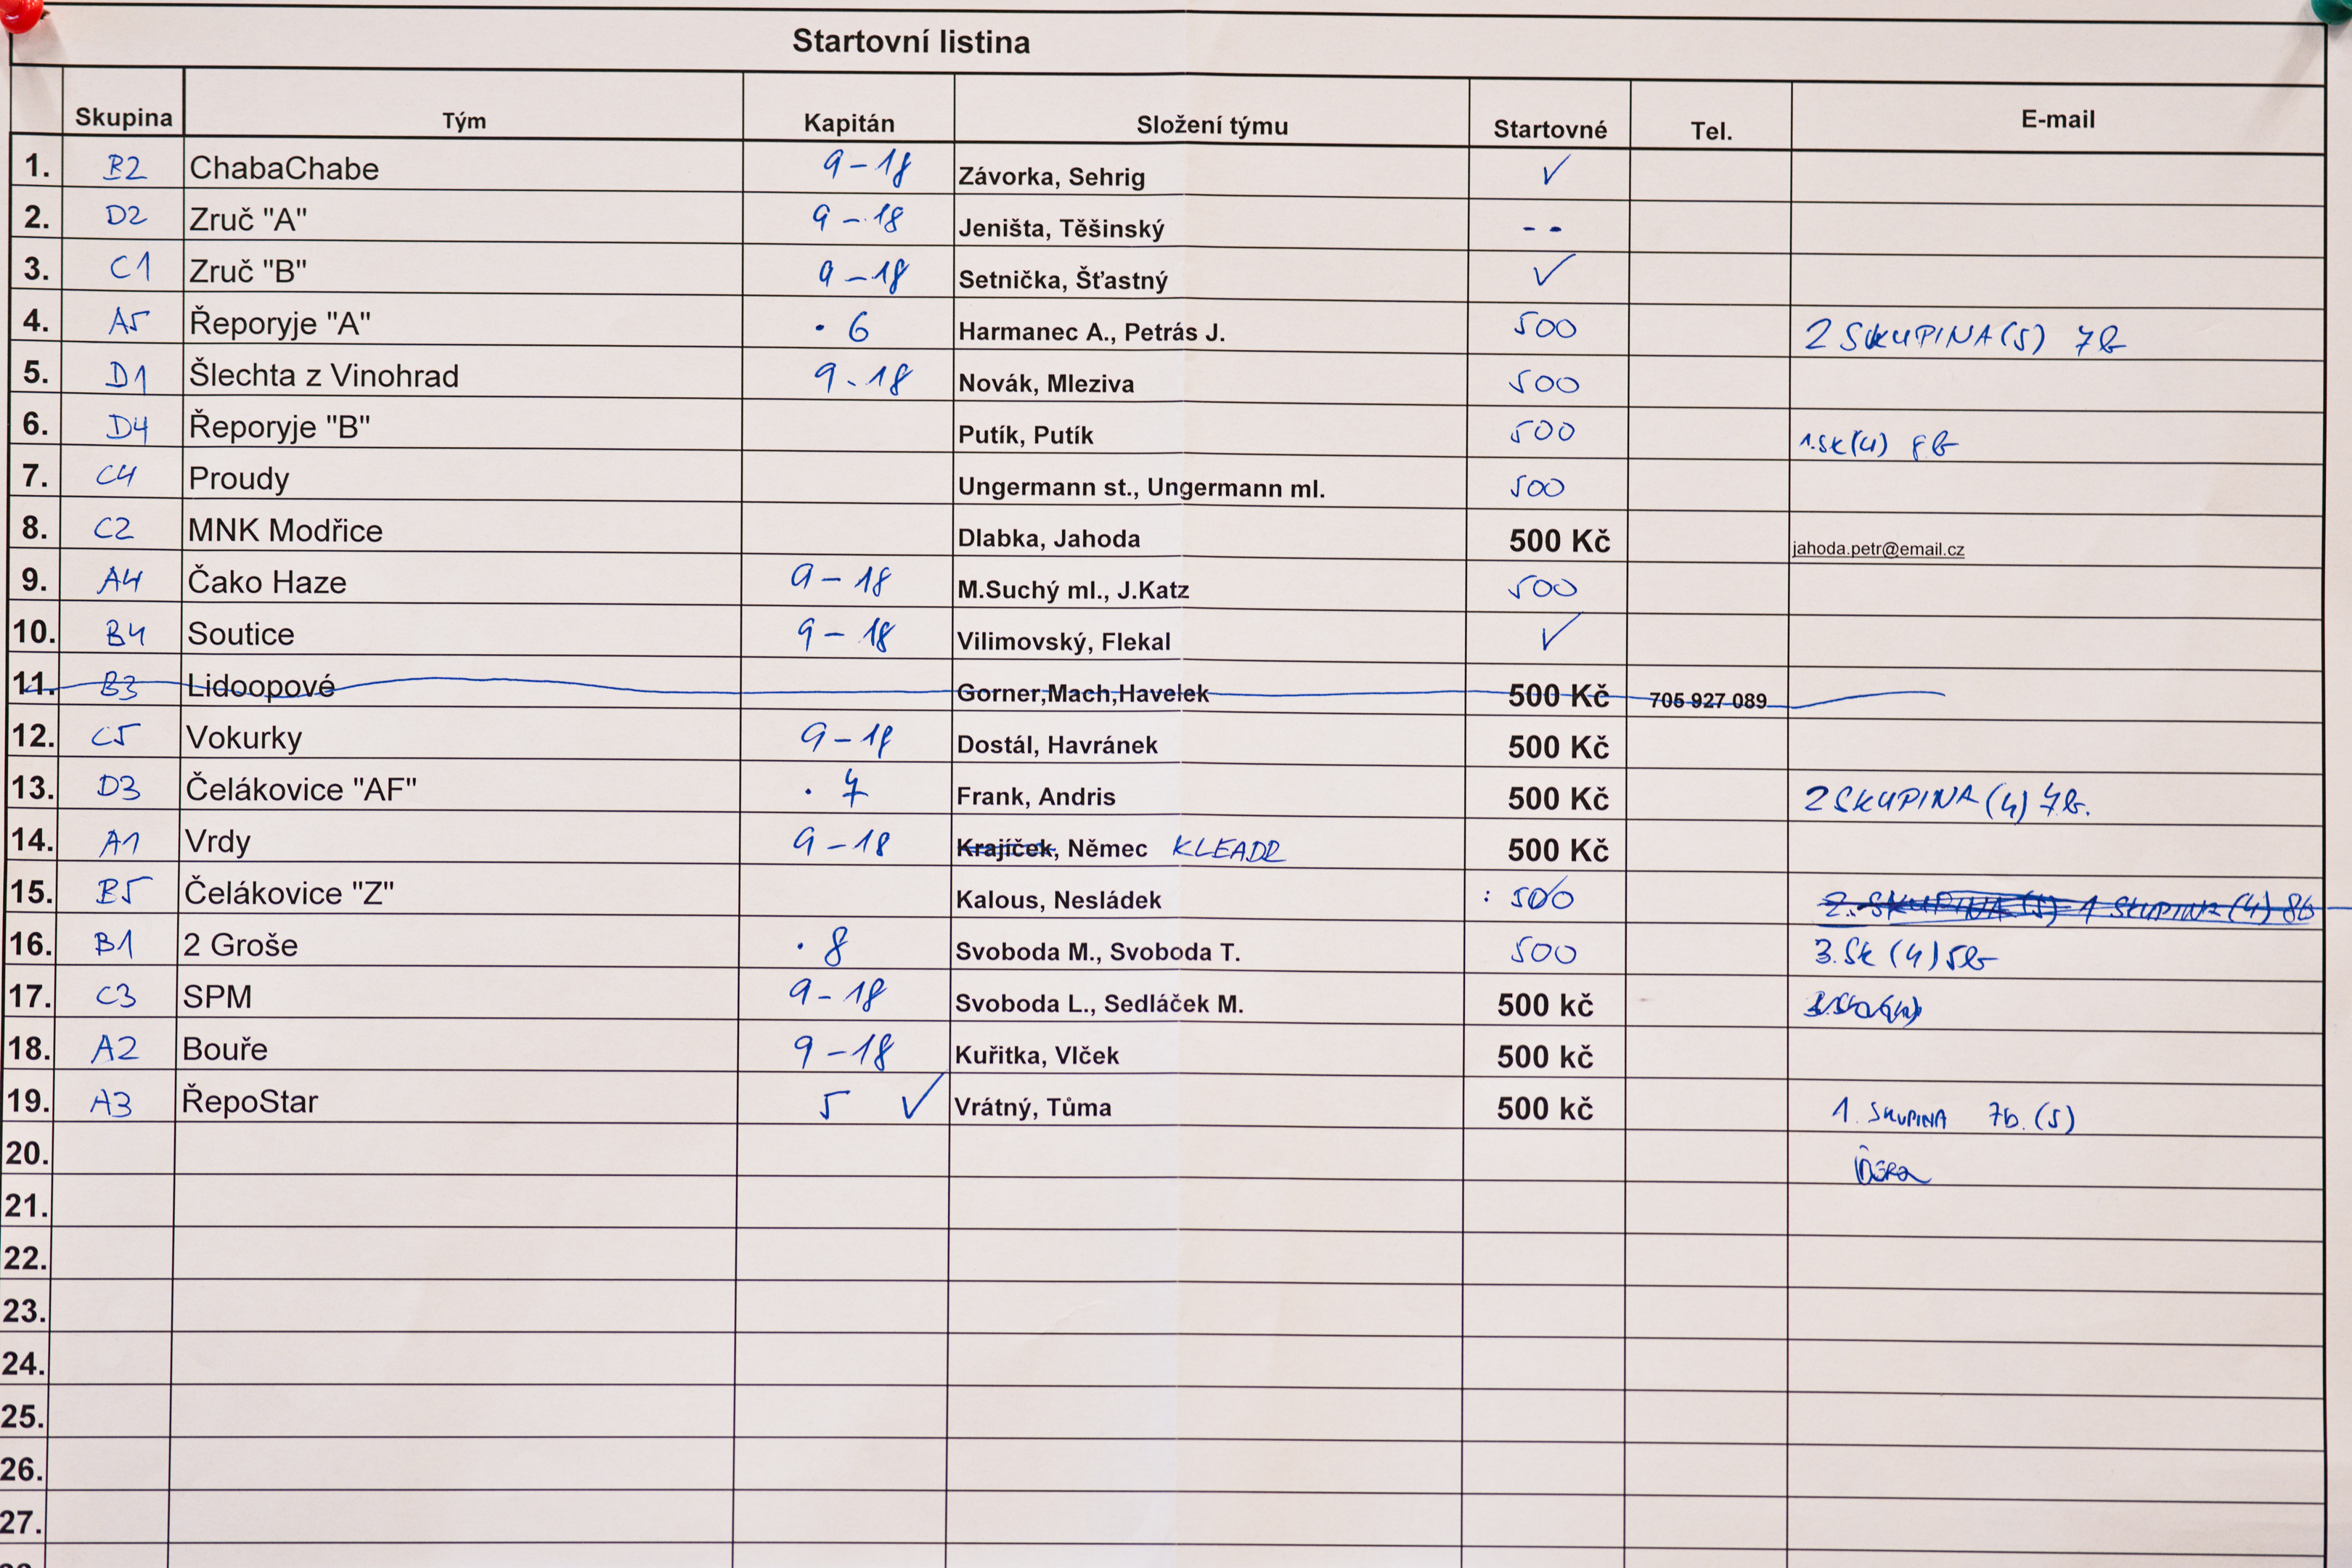 Startovní listina
Skupina Tým Kapitán Složení týmu Startovné Tel. E-mail
1. B2 ChabaChabe 9-18 Závorka, Sehrig ✓
2. D2 Zruč "A" 9-18 Jeništa, Těšinský - -
3. C1 Zruč "B" 9-18 Setnička, Šťastný ✓
4. A5 Řeporyje "A" · 6 Harmanec A., Petrás J. 500 2 SKUPINA (5) 7b
5. D1 Šlechta z Vinohrad 9-18 Novák, Mleziva 500
6. D4 Řeporyje "B" Putík, Putík 500 1.sk(4) 8b
7. C4 Proudy Ungermann st., Ungermann ml. 500
8. C2 MNK Modřice Dlabka, Jahoda 500 Kč jahoda.petr@email.cz
9. A4 Čako Haze 9-18 M.Suchý ml., J.Katz 500
10. B4 Soutice 9-18 Vilimovský, Flekal ✓
11. B3 Lidoopové Gorner,Mach,Havelek 500 Kč 705 927 089
12. C5 Vokurky 9-18 Dostál, Havránek 500 Kč
13. D3 Čelákovice "AF" · 7 Frank, Andris 500 Kč 2 SKUPINA (4) 7b.
14. A1 Vrdy 9-18 Krajíček, Němec KLEADR 500 Kč
15. B5 Čelákovice "Z" Kalous, Nesládek : 500 2. SKUPINA (5) 1 SKUPINA (4) 8b
16. B1 2 Groše · 8 Svoboda M., Svoboda T. 500 3. Sk (4) 5b
17. C3 SPM 9-18 Svoboda L., Sedláček M. 500 kč
18. A2 Bouře 9-18 Kuřitka, Vlček 500 kč
19. A3 ŘepoStar 5 ✓ Vrátný, Tůma 500 kč 1. SKUPINA 7b. (5)
20.
21.
22.
23.
24.
25.
26.
27.